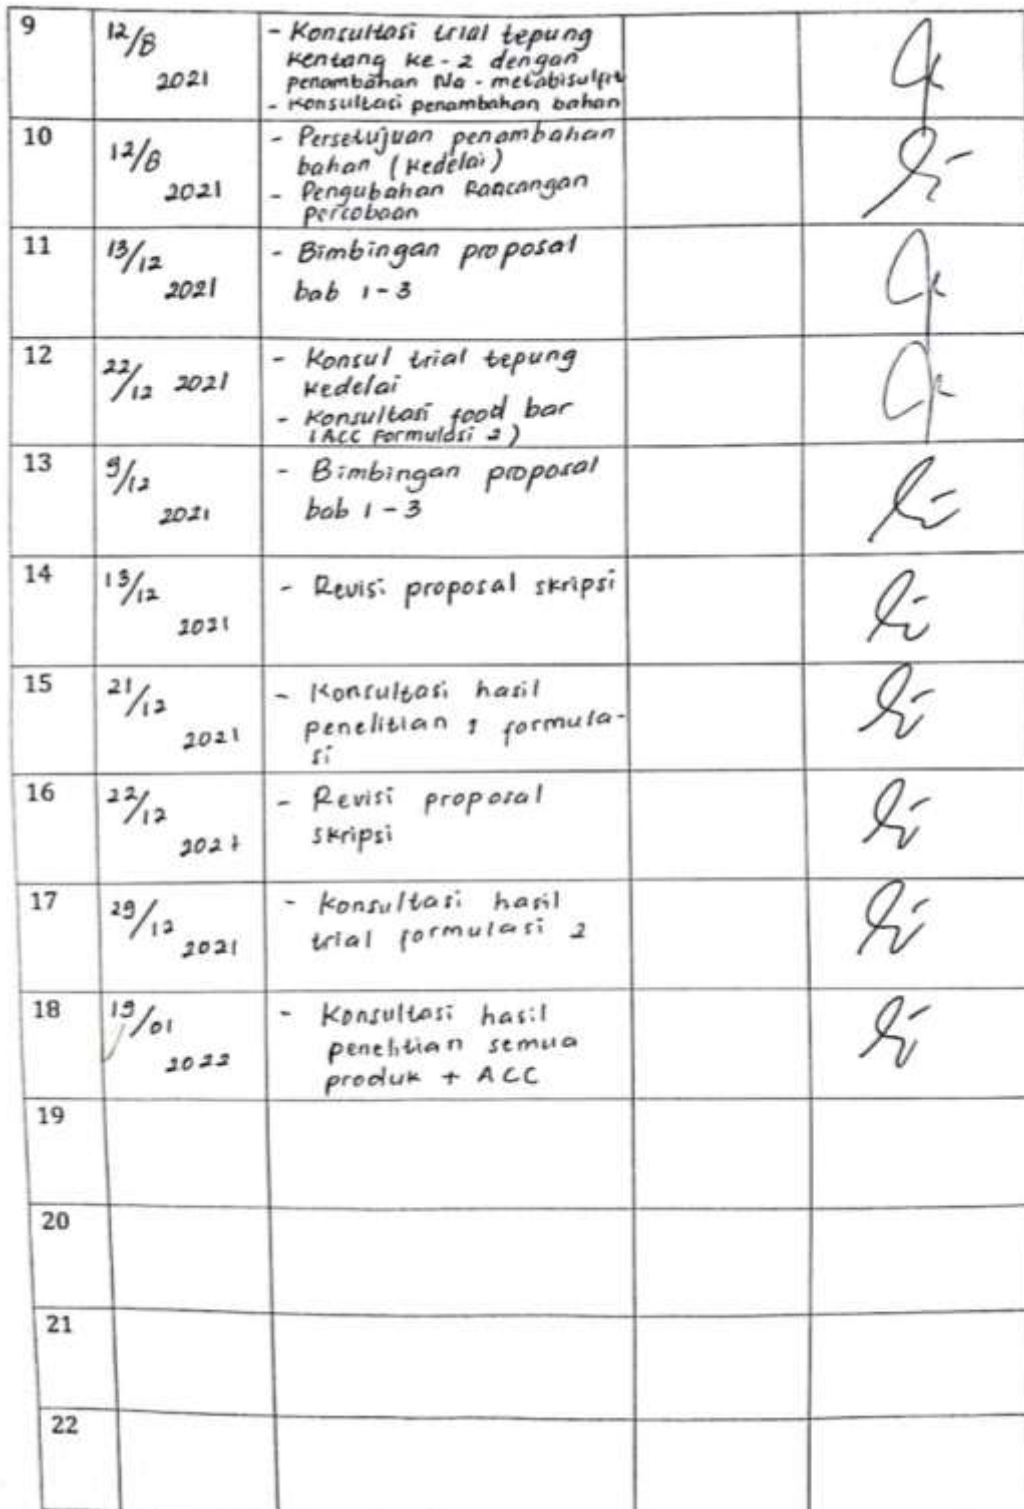 9
12/8
2021
- Konsultasi trial tepung
kentang ke-2 dengan
penambahan Na-metabisulfit
- Konsultasi penambahan bahan
10
12/8
2021
- Persetujuan penambahan
bahan (kedelai)
- Pengubahan Rancangan
percobaan
11
13/12
2021
- Bimbingan proposal
bab 1-3
12
22/12 2021
- Konsul trial tepung
kedelai
- Konsultasi food bar
(ACC Formulasi 2)
13
9/12
2021
- Bimbingan proposal
bab 1-3
14
13/12
2021
- Revisi proposal skripsi
15
21/12
2021
- Konsultasi hasil
penelitian formula-
si
16
22/12
2021
- Revisi proposal
skripsi
17
29/12
2021
- Konsultasi hasil
trial formulasi 2
18
19/01
2022
- Konsultasi hasil
penelitian semua
produk + ACC
19
20
21
22